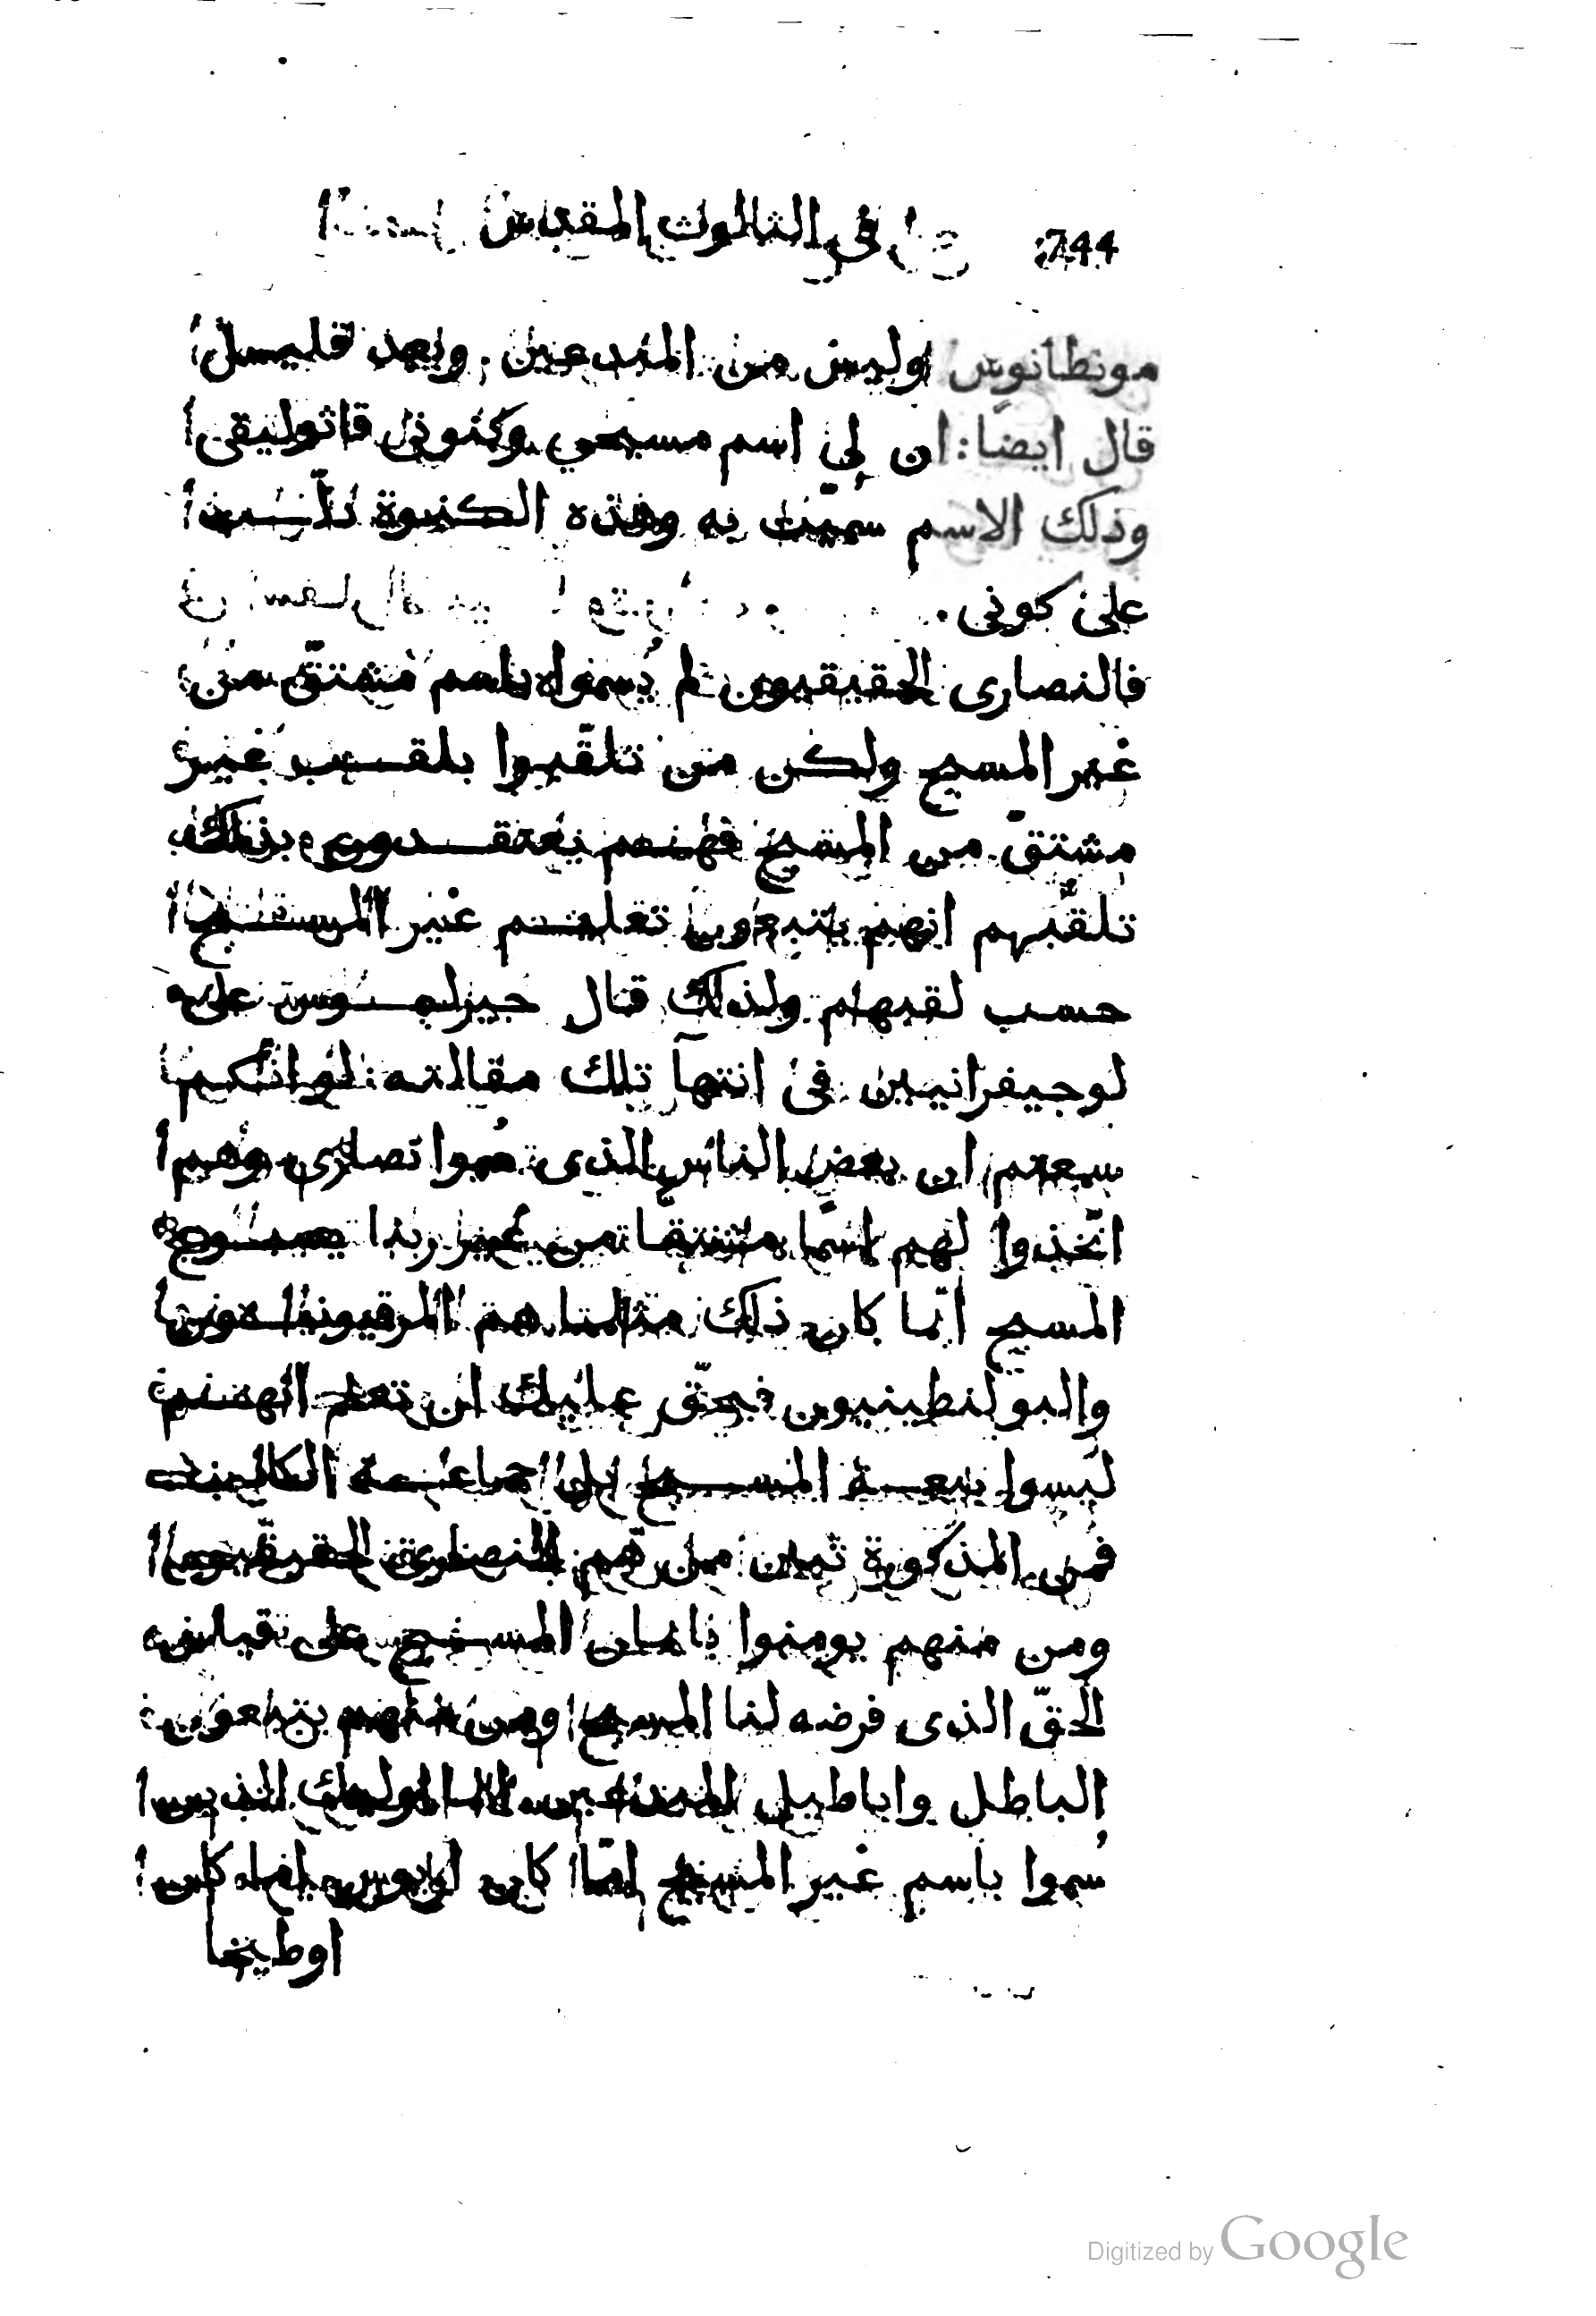 244 في الثالوث المقدس
مونطانوس وليس من المبدعين. وبعد قليل
قال ايضًا: ان لي اسم مسيحي وكنوتى قاثوليقى
وذلك الاسم سميّت به وهذه الكنيوة
على كونى.
فالنصارى الحقيقيون لم يُسموا باسم مشتقّ من
غير المسيح ولكن من تلقّبوا بلقب غير
مشتقّ من المسيح فهم يعتقدون بذلك
تلقّبهم انهم يتبعون تعليم غير المسيح
حسب لقبهم ولذلك قال جيرلموس على
لوجيفرانيين فى انتهآ تلك مقالته: لو انكم
سمعتم ان بعض الناس الذى سُموا نصارى وهم
اتّخذوا لهم اسمًا مشتقًا من غير ربنا يسوع
المسيح امّا كان ذلك مثلما هم المرقيونيون
والبولنطينيون فيحقّ عليك ان تعلم انهم
ليسوا بيعة المسيح بل جماعة
فمن المذكورة تبين من هم النصارى الحقيقيون
ومن منهم يومنوا بايمان المسيح على قياس
الحقّ الذى فرضه لنا المسيح ومن منهم يتبعون
الباطل واباطيل المبدعين الذين
سُموا باسم غير المسيح امّا كان اريوس اما كان
اوطيخا
Digitized by Google